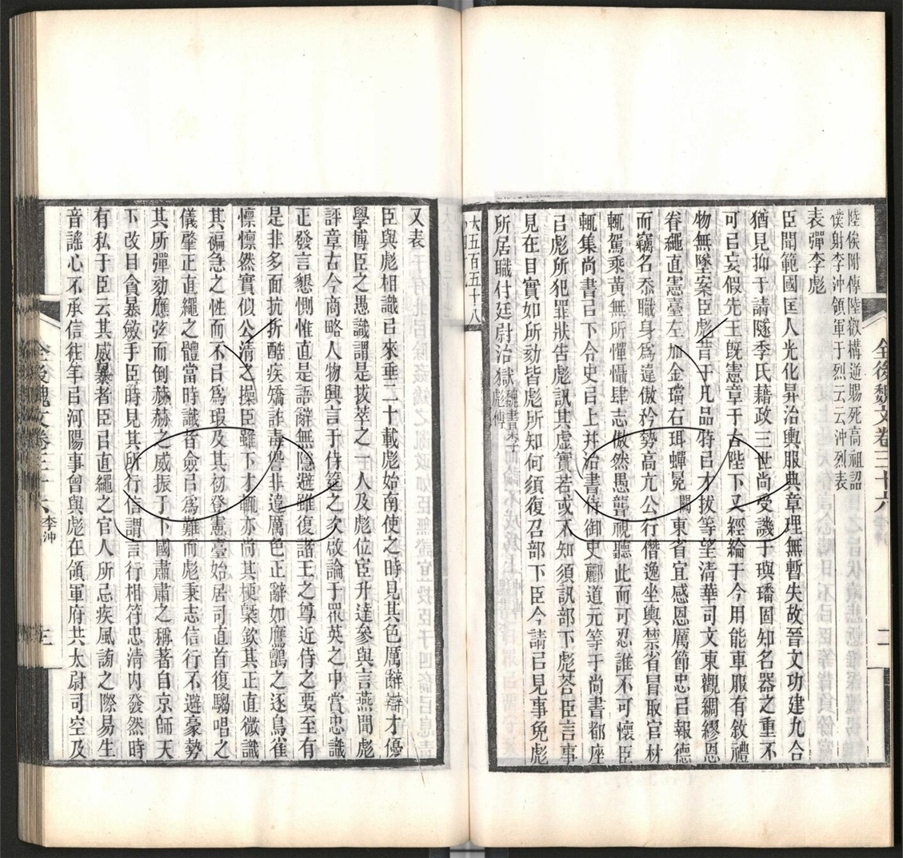 陸俟附傳陸叡構逆賜死高祖詔
僕射李沖領軍于烈云云沖烈表
表彈李彪
臣聞範國匡人光化昇治輿服典章理無暫失故晉文功建九合
猶見抑于請隧季氏藉政三世尚受譏于璵璠固知名器之重不
可㠯妄假先王旣憲章于古陛下又經綸于今用能車服有敘禮
物無墜案臣彪昔于凡品特㠯才拔等望清華司文東觀綢繆恩
眷繩直憲臺左加金璫右珥蟬冕 東省宜感恩厲節忠㠯報德
而竊名忝職身爲違傲矜勢高亢公行僭逸坐輿禁省冒取官材
輒駕乘黃無所憚懾肆志傲然愚聾視聽此而可忍誰不可懷臣
輒集尚書㠯下令史㠯上幷治書侍御史酈道元等于尚書都座
㠯彪所犯罪狀告彪訊其虛實若或不知須訊部下彪荅臣言事
見在目實如所劾皆彪所知何須復召部下臣今請㠯見事免彪
所居職付廷尉治獄魏書李彪傳
大五百五十八
全後魏文卷三十六
二
又表
臣與彪相識㠯來垂二十載彪始南使之時見其色厲辭辯才優
學博臣之愚識謂是拔萃之一人及彪位宦升達參與言燕聞彪
評章古今商略人物興言于侍筵之次啟論于眾英之中賞忠識
正發言懇惻惟直是語辭無隱避雖復諸王之尊近侍之要至有
是非多面抗折酷疾矯詐毒讐非違厲色正辭如鷹鸇之逐鳥雀
懔懔然實似公清之操臣雖下才輒亦尚其梗槩欽其正直微識
其褊急之性而不㠯爲瑕及其初登憲臺始居司直首復騶唱之
儀肇正直繩之體當時識者僉㠯爲難而彪秉志信行不避豪勢
其所彈劾應弦而倒赫赫之威振于下國肅肅之稱著自京師天
下改目貪暴斂手臣時見其所行信謂言行相符忠清內發然時
有私于臣云其威暴者臣㠯直繩之官人所忌疾風謗之際易生
音謠心不承信往年㠯河陽事曾與彪在領軍府共太尉司空及
全後魏文卷三十六
李沖
三